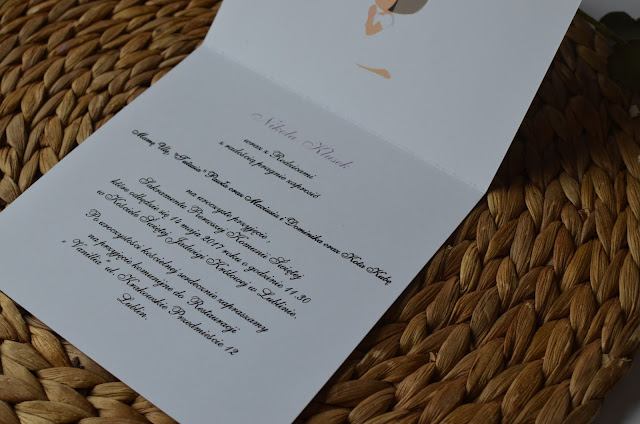 Nikola Kłusek
wraz z Rodzicami
z radością pragnie zaprosić
Mamę, Wię, Tatusia i Pawła oraz Mariusza i Dominika oraz Nata Natę
na uroczyste przyjęcie
Sakramentu Pierwszej Komunii Świętej
które odbędzie się 13 maja 2017 roku o godzinie 11.30
w Kościele Świętej Jadwigi Królowej w Lublinie.
Po uroczystości kościelnej serdecznie zapraszamy
na przyjęcie komunijne do Restauracji
" Vanilla" ul. Krakowskie Przedmieście 12
Lublin.